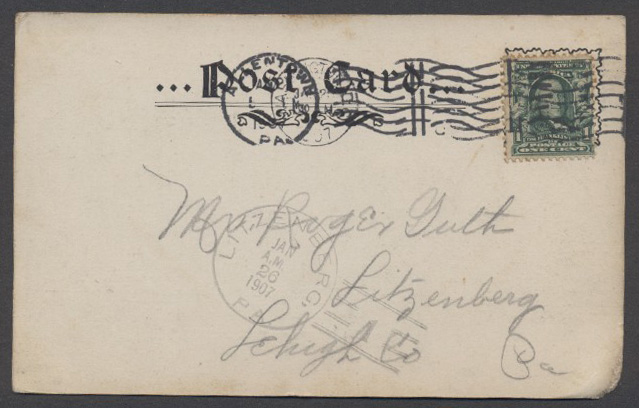 ... Post Card ...
ALLENTOWN
PA
1907
POSTAGE
ONE CENT
Mr Roger Guth
LITZENBERG
JAN
A.M.
26
1907
PA
Litzenberg
Lehigh Co Pa